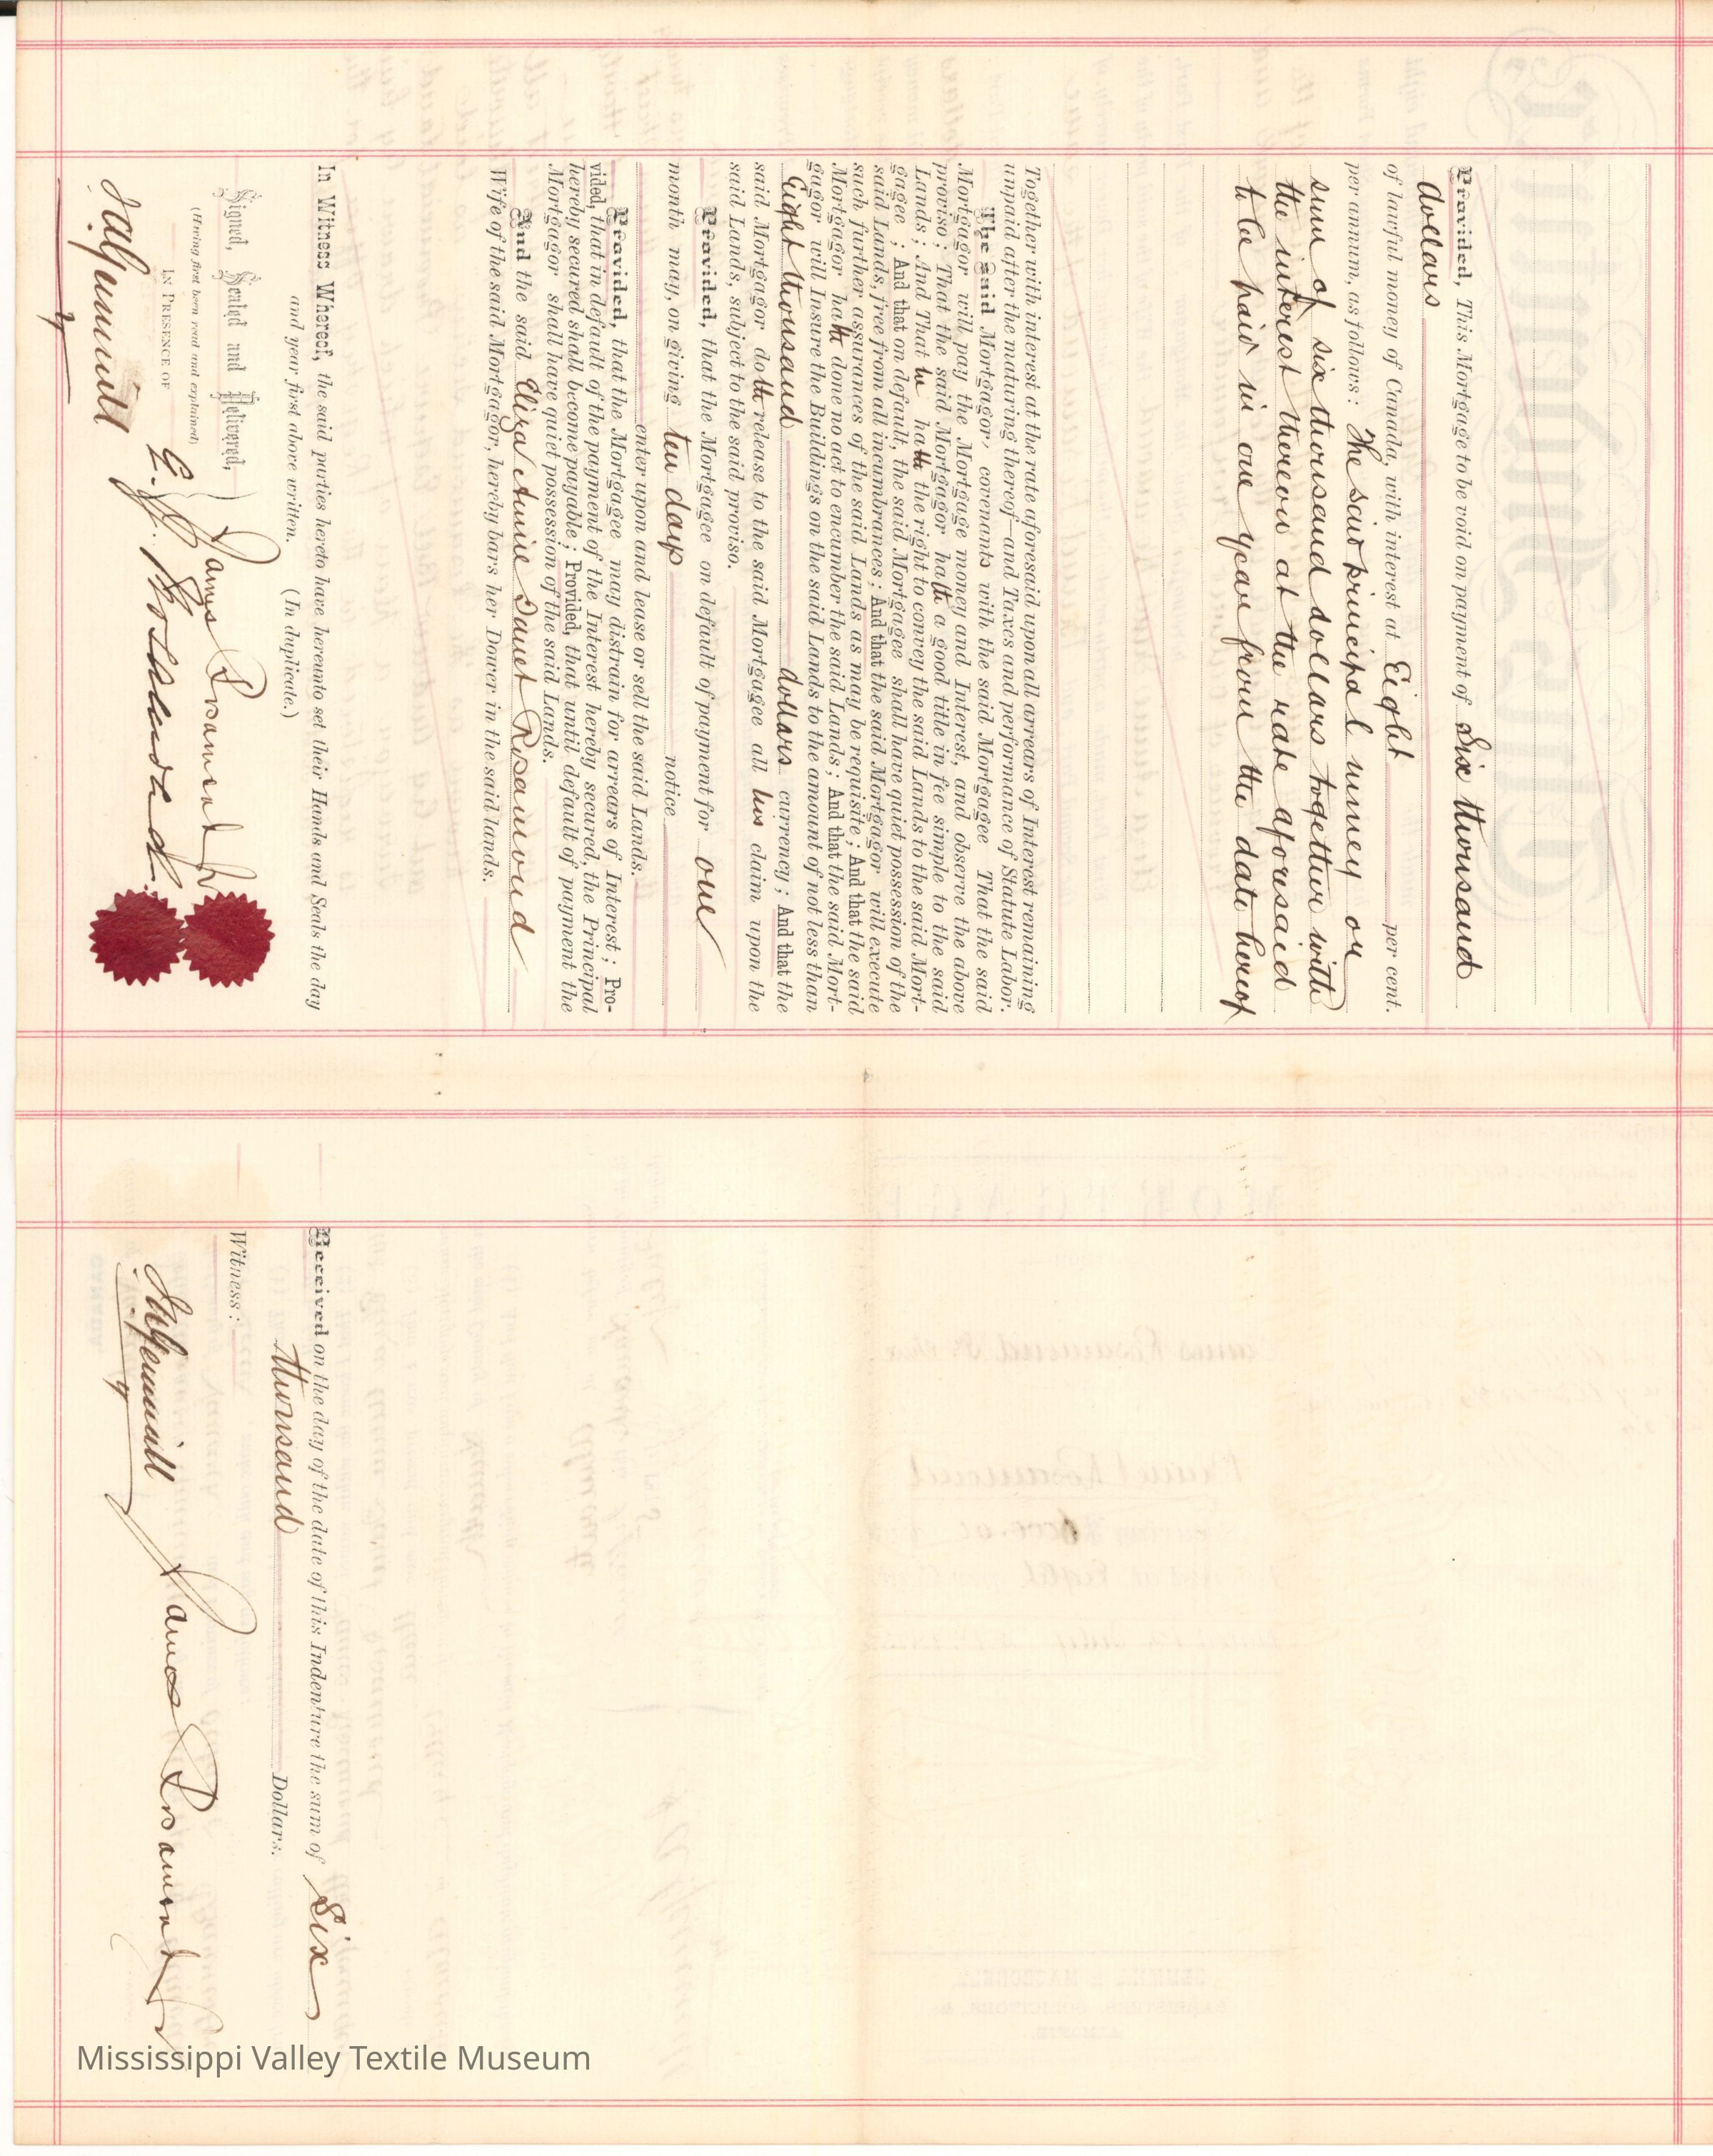 Provided, This Mortgage to be void on payment of Six thousand
dollars
of lawful money of Canada, with interest at Eight per cent.
per annum, as follows: The said principal money or
sum of six thousand dollars together with
the interest thereon at the rate aforesaid
to be paid in one year from the date hereof
Together with interest at the rate aforesaid upon all arrears of Interest remaining
unpaid after the maturing thereof—and Taxes and performance of Statute Labor.
The said Mortgagor, covenants with the said Mortgagee That the said
Mortgagor will pay the Mortgage money and Interest, and observe the above
proviso; That the said Mortgagor hath a good title in fee simple to the said
Lands; And That he hath the right to convey the said Lands to the said Mort-
gagee; And that on default, the said Mortgagee shall have quiet possession of the
said Lands, free from all incumbrances; And that the said Mortgagor will execute
such further assurances of the said Lands as may be requisite; And that the said
Mortgagor hath done no act to encumber the said Lands; And that the said Mort-
gagor will Insure the Buildings on the said Lands to the amount of not less than
Eight thousand dollars currency; And that the
said Mortgagor doth release to the said Mortgagee all his claim upon the
said Lands, subject to the said proviso.
Provided, that the Mortgagee on default of payment for one
month may, on giving ten days notice
enter upon and lease or sell the said Lands.
Provided, that the Mortgagee may distrain for arrears of Interest; Pro-
vided, that in default of the payment of the Interest hereby secured, the Principal
hereby secured shall become payable; Provided, that until default of payment the
Mortgagor shall have quiet possession of the said Lands.
And the said Eliza Annie Janet Rosamond
Wife of the said Mortgagor, hereby bars her Dower in the said lands.
In Witness Whereof, the said parties hereto have hereunto set their Hands and Seals the day
and year first above written. (In duplicate.)
Signed, Sealed and Delivered,
(Having first been read and explained)
IN PRESENCE OF
James Rosamond Jr
Rosamond
Jamieson
Received on the day of the date of this Indenture the sum of Six
thousand Dollars.
Witness:
James Rosamond Jr
Mississippi Valley Textile Museum